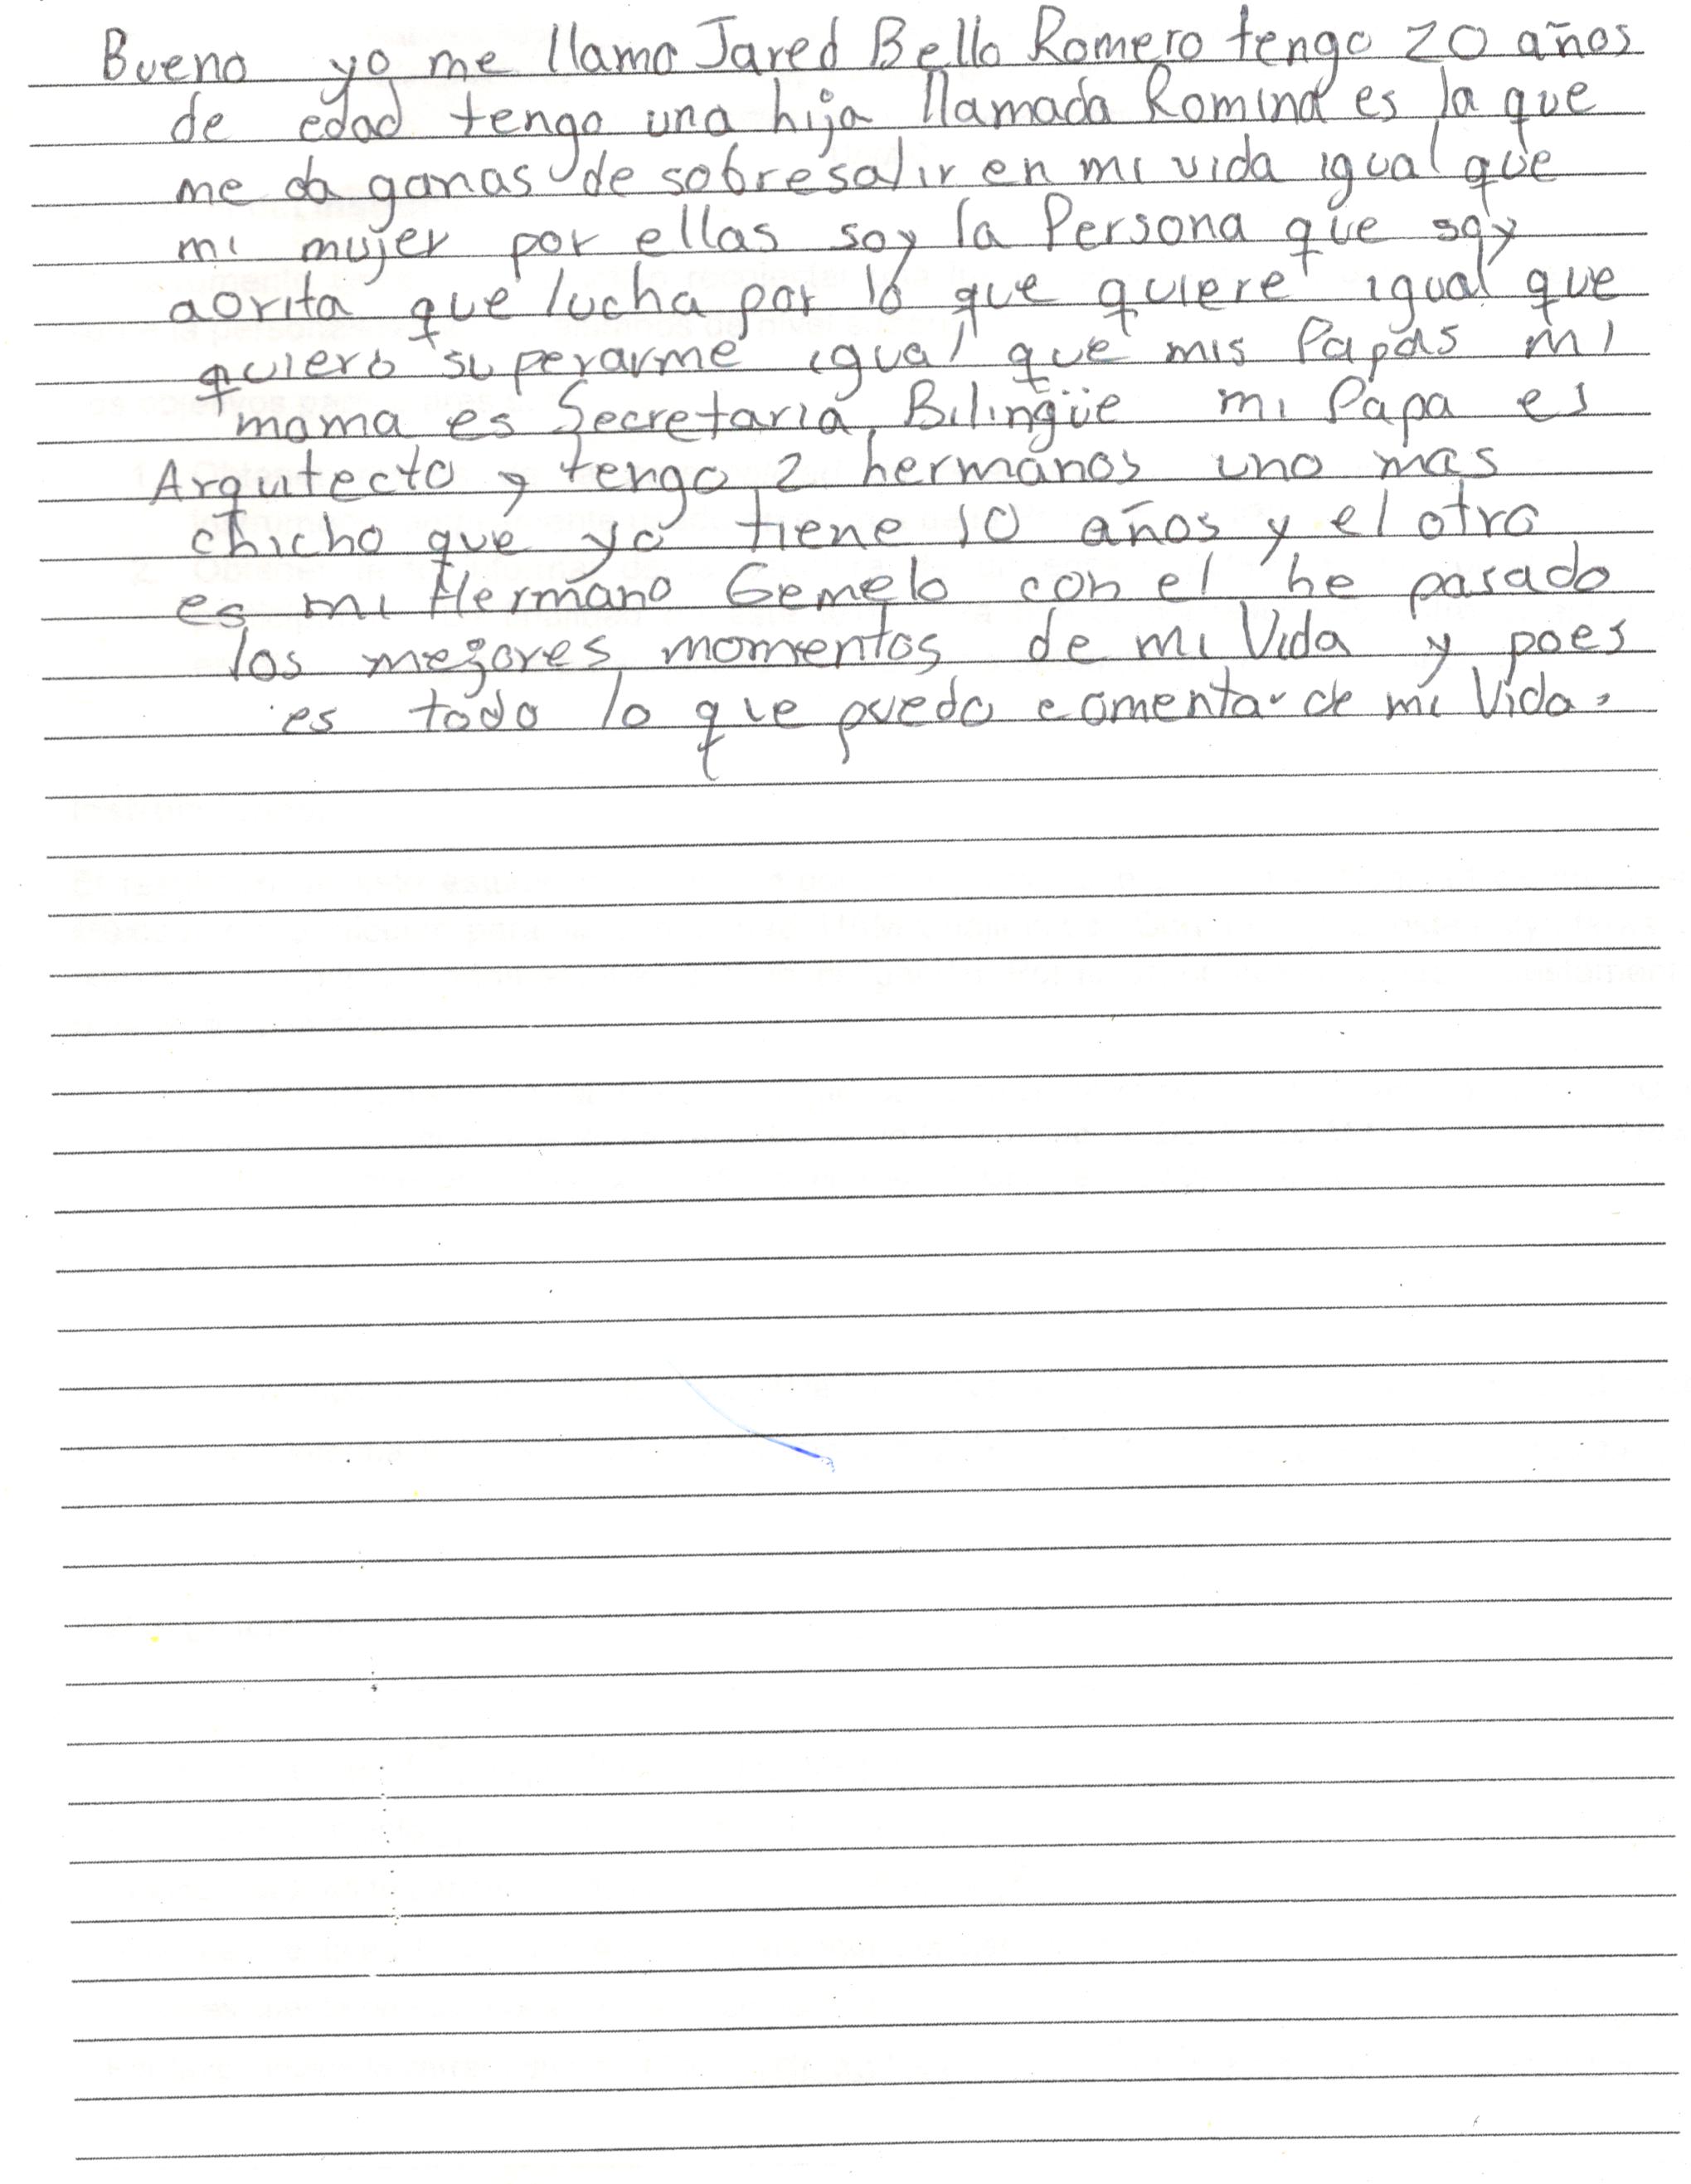 Bueno yo me llamo Jared Bello Romero tengo 20 años
de edad tengo una hija llamada Romina es la que
me da ganas de sobresalir en mi vida igual que
mi mujer por ellas soy la Persona que soy
aorita que lucha por lo que quiere igual que
quiero superarme igual que mis Papás mi
mama es Secretaria Bilingüe mi Papa es
Arqutecto y tengo 2 hermanos uno mas
chicho que yo tiene 10 años y el otro
es mi Hermano Gemelo con el he pasado
los mejores momentos de mi Vida y poes
es todo lo que puedo comentar de mi Vida.